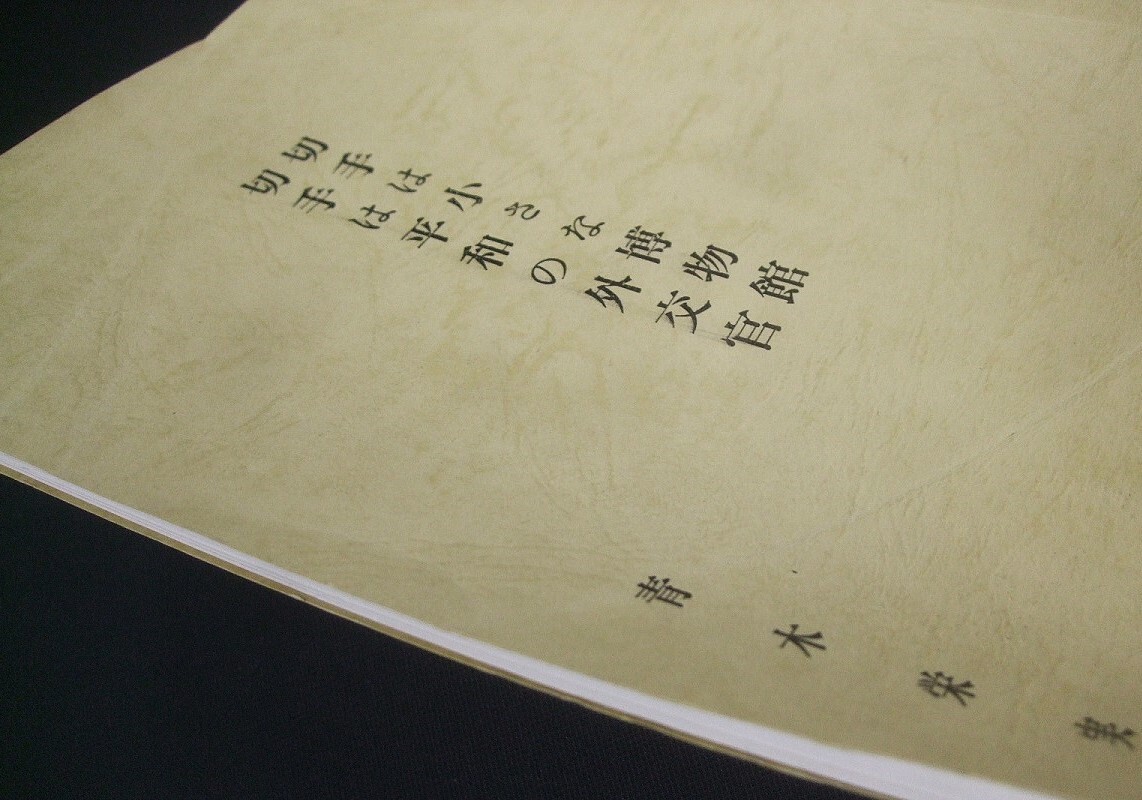 切手は小さな博物館
切手は平和の外交官
青木栄実